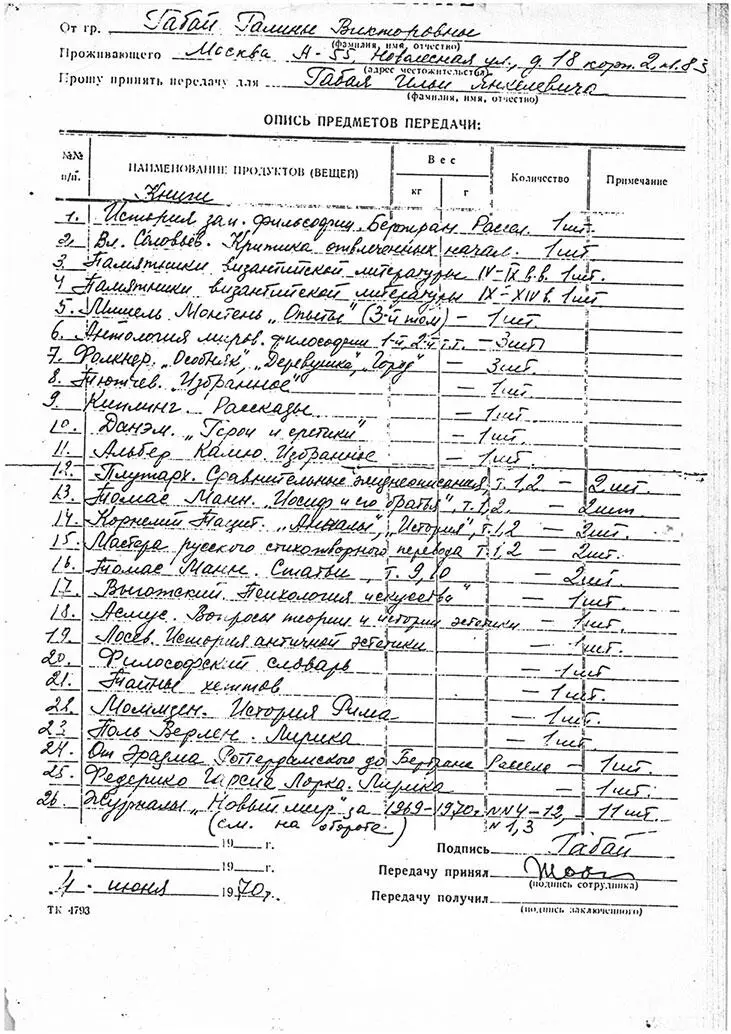 От гр. Габай Галины Викторовны
(фамилия, имя, отчество)
Проживающего Москва А-55, Новолесная ул., д. 18 корп. 2, кв. 83
(адрес местожительства)
Прошу принять передачу для Габая Ильи Янкелевича
(фамилия, имя, отчество)
ОПИСЬ ПРЕДМЕТОВ ПЕРЕДАЧИ:
№№ п/п. НАИМЕНОВАНИЕ ПРОДУКТОВ (ВЕЩЕЙ) Вес кг г Количество Примечание
Книги
1. История зап. философии. Бертран Рассел. 1 шт.
2. Вл. Соловьев. Критика отвлеченных начал. 1 шт
3 Памятники византийской литературы IV-IX в.в. 1 шт.
4 Памятники византийской литературы IX-XIV в. 1 шт
5. Мишель Монтень „Опыты" (3-й том) - 1 шт.
6. Антология миров. философии 1-й, 2-й т.т. - 3 шт
7. Фолкнер. „Особняк", „Деревушка", „Город" - 3 шт.
8. Тютчев. „Избранное" - 1 шт.
9 Киплинг. Рассказы - 1 шт.
10. Данэм. „Герои и еретики" - 1 шт.
11. Альбер Камю. Избранное - 1 шт.
12. Плутарх. Сравнительные жизнеописания, т. 1,2 - 2 шт.
13. Томас Манн. „Иосиф и его братья", т. 1,2. - 2 шт
14. Корнелий Тацит. „Анналы", „История", т. 1,2 - 2 шт.
15. Мастера русского стихотворного перевода т. 1,2 - 2 шт.
16. Томас Манн. Статьи, т. 9, 10 - 2 шт.
17. Выготский. Психология искусства" - 1 шт.
18. Асмус. Вопросы теории и истории эстетики - 1 шт.
19. Лосев. История античной эстетики - 1 шт.
20. Философский словарь - 1 шт
21. Тайны хеттов - 1 шт.
22. Моммзен. История Рима - 1 шт.
23 Поль Верлен. Лирика - 1 шт.
24. От Эразма Роттердамского до Бертрана Рассела - 1 шт.
25. Федерико Гарсиа Лорка. Лирика - 1 шт.
26. Журналы „Новый мир" за 1969-1970г. NN 4-12, - 11 шт.
N 1,3
(см. на обороте)
„ - " 19 г. Подпись Габай
„ " 19 г. Передачу принял
(подпись сотрудника)
4 июня 1970г. Передачу получил
(подпись заключенного)
ТК 4793